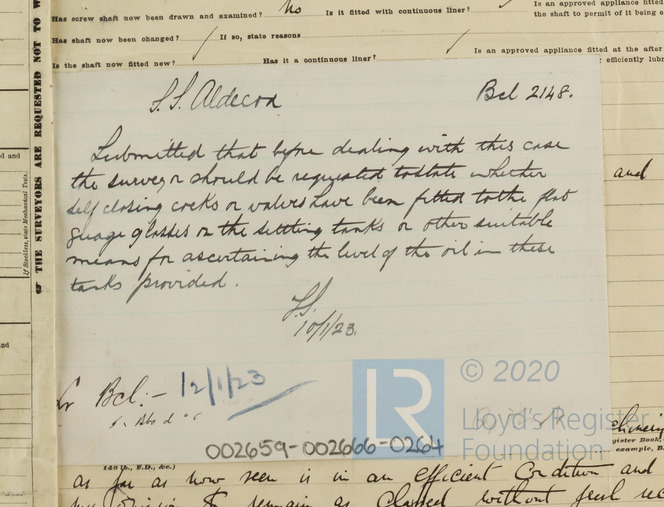 Has screw shaft now been drawn and examined? No Is it fitted with continuous liner? Is an approved appliance fitted
the shaft to permit of it being
Has shaft now been changed? If so, state reasons
Is an approved appliance fitted at the after
Is the shaft now fitted new? Has it a continuous liner? efficiently
THE SURVEYORS ARE REQUESTED NOT TO W
S.S. Aldecoa Bcl 2148.
Submitted that before dealing with this case
the surveyor should be requested to state whether
self closing cocks or valves have been fitted to the flat
guage glasses on the settling tanks or other suitable
means for ascertaining the level of the oil in these
tanks provided.
10/1/23.
and
Bcl:- 12/1/23
LR
© 2020
Lloyd's Register
Foundation
002659-002666-0264
140 lb., F.D., &c.)
as far as now seen is in an efficient condition and
remain as classed without fresh rec